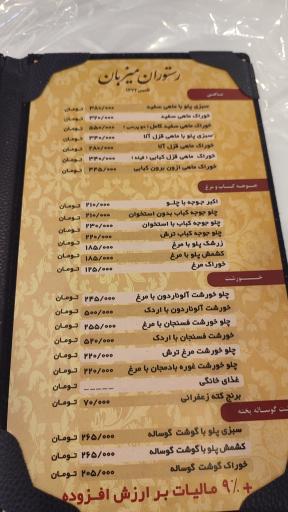 رستوران میزبان
ماهی
سبزی پلو با ماهی سفید ۳۸۰/۰۰۰ تومان
خوراک ماهی سفید ۳۲۰/۰۰۰ تومان
خوراک ماهی سفید کامل ۵۵۰/۰۰۰ تومان
سبزی پلو با ماهی قزل آلا ۳۴۰/۰۰۰ تومان
خوراک ماهی قزل آلا ۲۸۰/۰۰۰ تومان
خوراک ماهی قزل کبابی ۳۴۰/۰۰۰ تومان
خوراک ماهی ازون برون کبابی ۳۴۵/۰۰۰ تومان
جوجه کباب و مرغ
اکبر جوجه با چلو ۲۱۰/۰۰۰ تومان
چلو جوجه کباب بدون استخوان ۲۱۰/۰۰۰ تومان
چلو جوجه کباب با استخوان ۲۳۰/۰۰۰ تومان
چلو جوجه کباب ترش ۲۲۰/۰۰۰ تومان
زرشک پلو با مرغ ۱۸۵/۰۰۰ تومان
کشمش پلو با مرغ ۱۸۵/۰۰۰ تومان
خوراک مرغ ۱۲۵/۰۰۰ تومان
خورشت
چلو خورشت آلوناردون با مرغ ۲۴۵/۰۰۰ تومان
خورشت آلوناردون با اردک ۵۰۰/۰۰۰ تومان
چلو خورشت فسنجان با مرغ ۲۵۵/۰۰۰ تومان
خورشت فسنجان با اردک ۵۲۰/۰۰۰ تومان
چلو خورشت مرغ ترش ۲۲۰/۰۰۰ تومان
چلو خورشت غوره بادمجان با مرغ ۲۲۰/۰۰۰ تومان
غذای خانگی _____ تومان
برنج کته زعفرانی ۷۰/۰۰۰ تومان
گوشت گوساله پخته
سبزی پلو با گوشت گوساله ۲۶۵/۰۰۰ تومان
کشمش پلو با گوشت گوساله ۲۶۵/۰۰۰ تومان
خوراک گوشت گوساله ۲۰۵/۰۰۰ تومان
+ ۹٪ مالیات بر ارزش افزوده